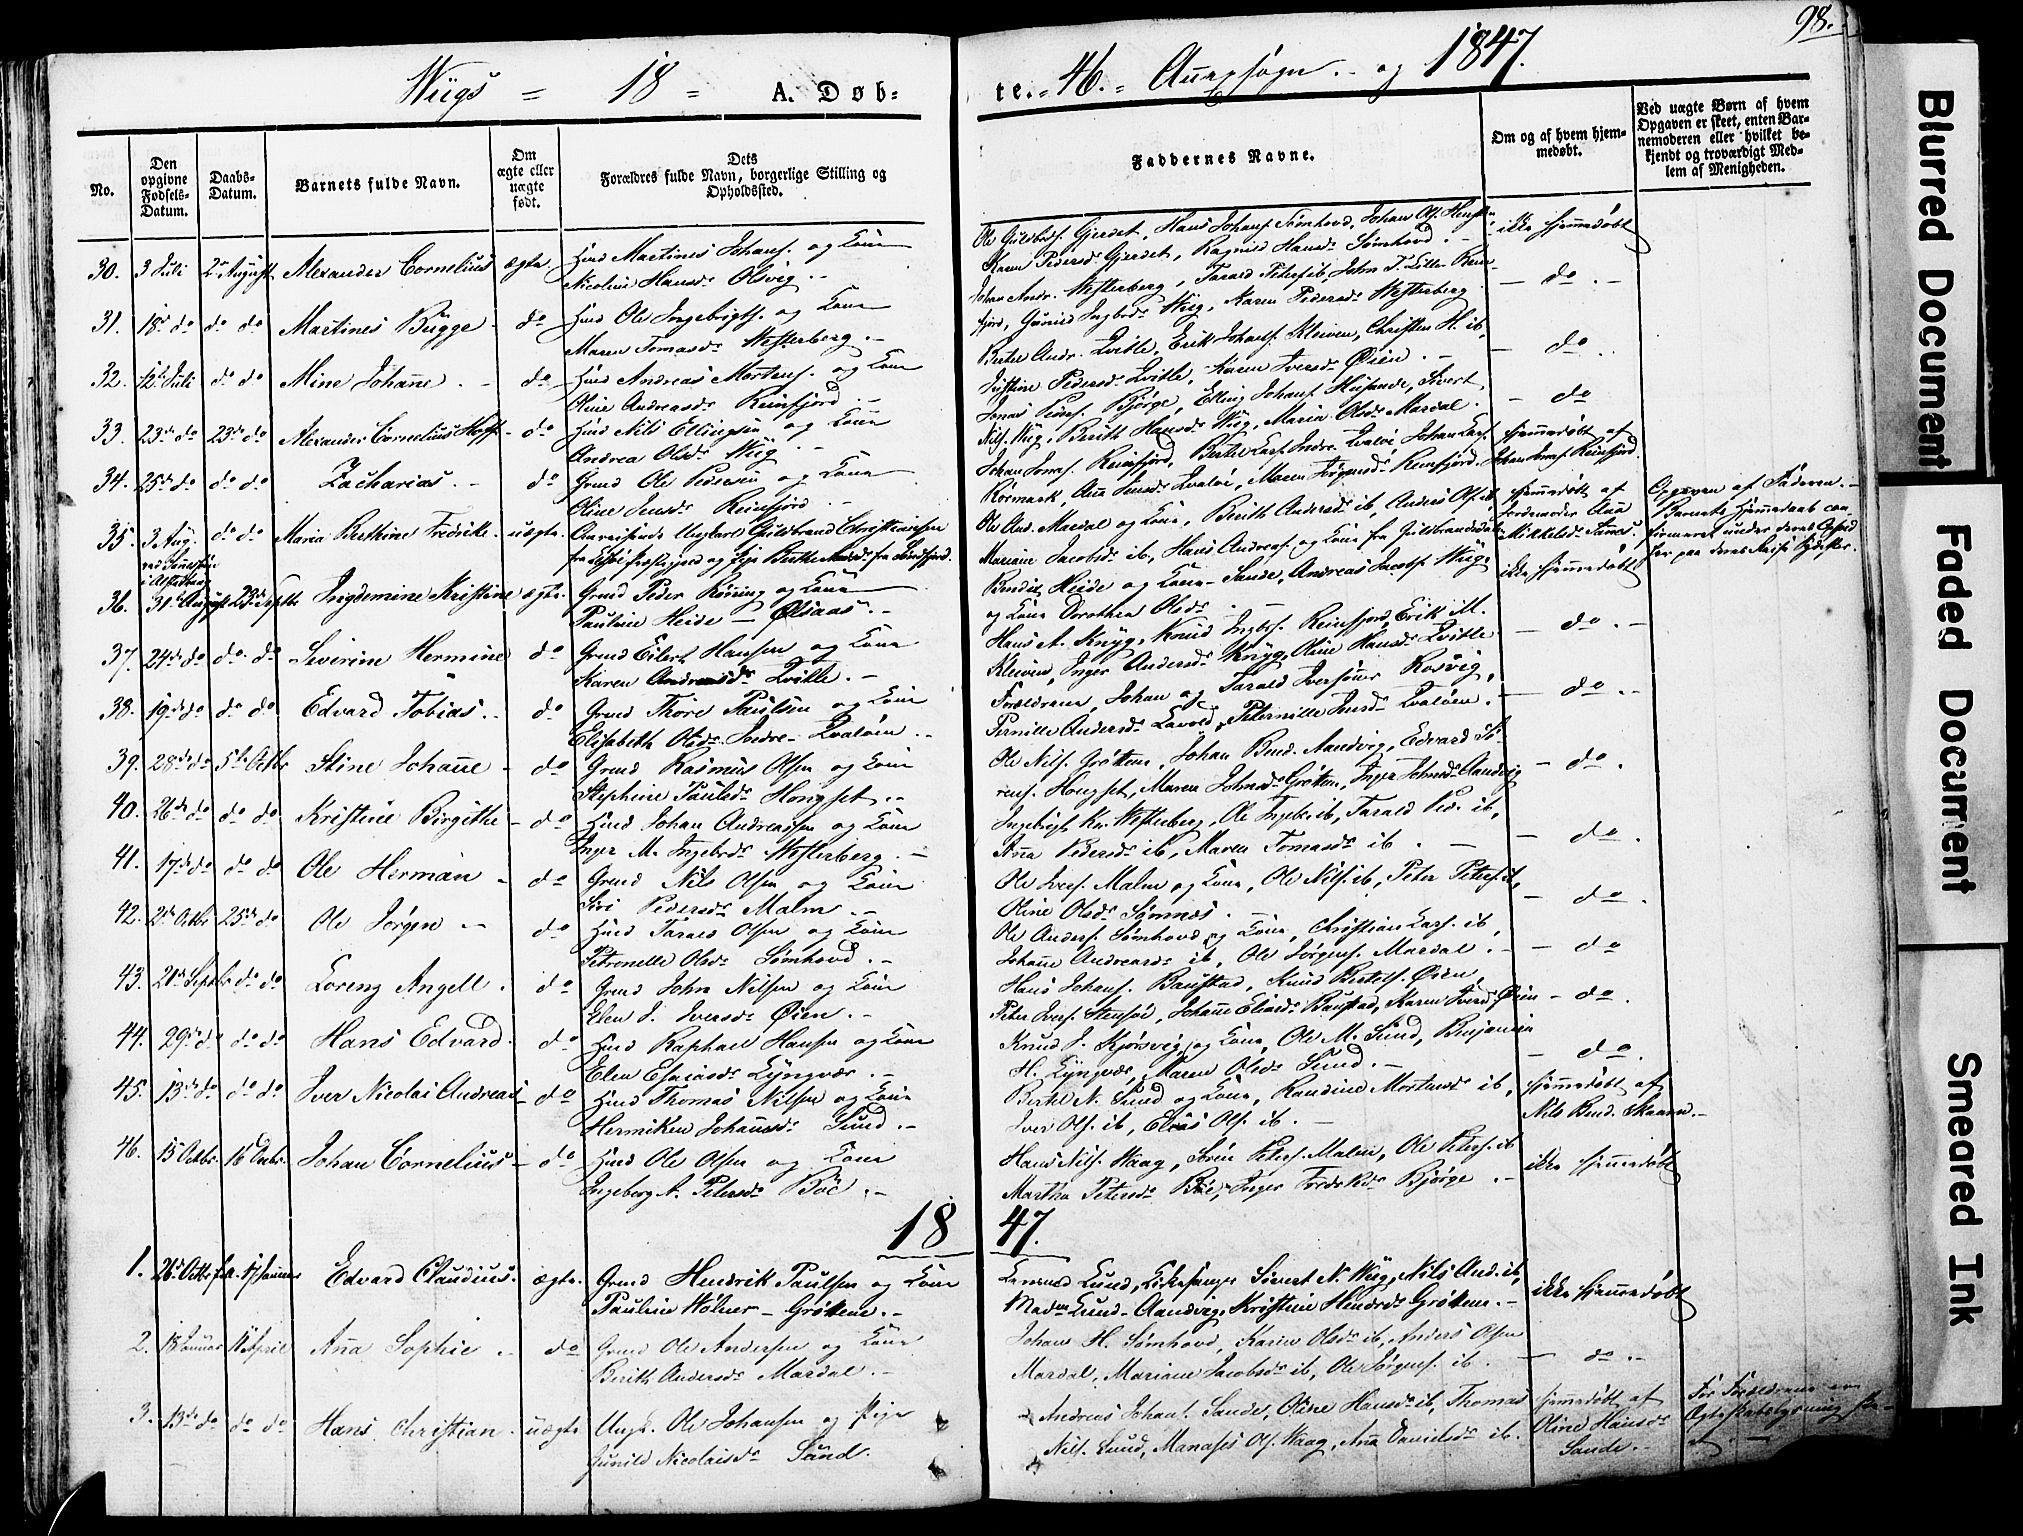 98.
Wiigs = 18 = A. Døb-
te. = 46. = Annexsogn. - og 1847.
No.
Den opgivne Fødsels-Datum.
Daabs-Datum.
Barnets fulde Navn.
Om ægte eller uægte født.
Dets Forældres fulde Navn, borgerlige Stilling og Opholdssted.
Faddernes Navne.
Om og af hvem hjem-medøbt.
Ved uægte Børn af hvem Opgaven er skeet, enten Bar-nemoderen eller hvilket be-kjendt og troværdigt Med-lem af Menigheden.
30. 3 Juli 2 August Alexander Cornelius ægte Huusd Martines Johans. og Kone
Nicoline Hansdr Olsvig. -
Ole Guldbrds. Gjerdet, Hans Johans. Sømhovd, Johan Ols.
Karen Pedersd. Gjerdet, Ragnild Hansd. Sømhovd. -
ikke hjemmedøbt
31. 18 do do do Martines Bügge - do Huusd Ole Ingebrigts. og Kone
Maren Tomasdr Westerberg. -
Johan Andr. Westerberg, Tarald Peters. ib, John T. Lille Rein-
fjord, Guruld Ingbrdr Wiig, Karen Pedersdr Westerberg
- do. -
32. 12te Juli do do Mine Johanne. - do Huusd Andreas Mortens. og Kone
Oline Andreasdr Reinfjord. -
Bertel Andr. Qvitle, Erik Johans. Kleiven, Christen H. ib,
Justine Pedersdr Qvitle, Karen Iversdr Øien. -
- do. .
33. 23de do 23de do Alexander Cornelius Hoff - do Huusd Nils Ellingsen og Kone
Andrea Olsdr Wiig. -
Jonas Peders. Bjørge, Elling Johans. Sivert
Nils. Wiig, Berith Hansdr Wiig, Maria Olsdr Mardal.
- do
34. 25de do do do Zacharias. - do Grmd Ole Pedersen og Kone
Oline Jensdr Reinfjord -
Johan Jonas. Reinfjord, Bertel Lars. Indre Qvaløi, Johan Lars.
Rørmark, Ann Jensdr Qvaløi, Maren Jørgensdr Reinfjord.
hjemmedøbt af
Johan Jonas. Reinfjord.
35. 3 Aug. do do Maria Berthine Fredrikke - uægte
Omreisende Ungkarl Guldbrand Christiansen
Ole And. Mardal og Kone, Berith Andersdr ib, Anders Ols. ib,
Mariane Jacobsdr ib, Hans Andreas. og Kone fra Guldbrandsdalen
hjemmedøbt af
Jordemoder Ana
Mikkelsdr
Opgaven af Faderen. -
Barnets hjemmedaab con-
firmeret under deres Ophold
her paa deres Reise
36. 31te August 23de Septbr Ingdemine Kristine ægte. Grmd Peder Røning og Kone
Pauline Heide - Olsaas. -
Bendix Heide og Kone - Sande, Andreas Jacobs. Wiig
og Kone Dorothea Olsdr. -
ikke hjemmedøbt
37. 24de do do. do Severine Hermine do Grmd Eilert Hansen og Kone
Karen Andreasdr Qvitle. -
Hans A. Knyg, Knud Ingbr. Reinfjord, Erik M.
Kleiven, Inger Andersdr Knyg, Oline Hansdr Qvitle
- do. -
38. 19de do do do Edvard Tobias. - do Grmd Thore Paulsen og Kone
Elisabeth Olsdr Indre - Qvaløen. -
Forældrene, Johan og Tarald Iversøner Rosvig,
Pernille Andersdr Lavold, Peternille Jensdr Qvaløen.
- do. -
39. 28de do 5te Octbr Stine Johanne - do Grmd Rasmus Olsen og Kone
Stephine Paulsdr Hongset. -
Ole Nils. Grøttem, Johan Bend. Aandvig, Edvard Sø-
rens. Hongset, Maren Johnsdr Grøttem, Inger Johnsdr Aandvig
- do.
40. 26de do do do Kristine Birgithe - do Huusd Johan Andreassen og Kone
Inger M. Ingebrdr Westerberg. -
Ingebrigt Kn. Westerberg, Ole Ingebr. ib, Tarald Ped. ib,
Anna Pedersdr ib, Maren Tomasdr ib. -
- do.
41. 17de do do do Ole Herman - do Grmd Nils Olsen og Kone
Siri Pedersdr Malm. -
Ole Ivers. Malm og Kone, Ole Nils. ib, Peter Peters. ib,
Oline Olsdr Sømnes. -
- do.
42. 2de Octbr 25de do Ole Jørgen - do Huusd Tarald Olsen og Kone
Petronelle Olsdr Sømhovd. -
Ole Anders. Sømhovd og Kone, Christian Lars. ib,
Johanne Andreasdr ib, Ole Jørgens. Mardal. -
- do
43. 20de Septbr do do Lorenz Angell. do Grmd John Nilsen og Kone
Elen J. Iversdr Øien. -
Hans Johans. Baustad, Knud Bertels. Øien
Peter Ivers. Stensøi, Johanne Eliasdr Baustad, Karen Iversdr Øien
- do.
44. 29de do do do Hans Edvard. do Huusd Raphael Hansen og Kone
Elen Esaiasdr Lyngvær. -
Knud J. Kjørsvig og Kone, Ole M. Sund, Benjamin
H. Lyngvær, Maren Olsdr Sund. -
- do.
45. 13de do do do Iver Nicolai Andreas - do Huusd Thomas Nilsen og Kone
Herniken Johansdr Sund. -
Bertel N. Sund og Kone, Randine Mortensdr ib,
Iver Ols. ib, Elias Ols. ib. -
hjemmedøbt af
Nils Bend. Skaanes. -
46. 15 Octbr. 16 Decbr. Johan Cornelius - do Huusd Ole Olsen og Kone
Ingeborg A. Petersdr Böe. -
Hans Nils. Waag, Søren Peters. Malm, Ole Peters. ib
Martha Petersdr Böe, Inger Fredriksdr Bjørge. -
ikke hjemmedøbt
18 47.
1. 26de Octbr f. A. 17 Januar Edvard Claudius. ægte. Grmd Hendrik Paulsen og Kone
Pauline Wolner - Grøttem. -
Lensmd Lund, Kirkesanger Sivert N. Wiig, Nils And. ib,
Madm Lund - Aandvig, Kristine Hendrdr Grøttem. -
ikke hjemmedøbt
2. 18 Januar 11 April Ana Sophie - do Grmd Ole Andersen og Kone
Berith Andersdr Mardal. -
Johan H. Sømhovd, Karen Olsdr ib, Anders Olsen
Mardal, Mariane Jacobsdr ib, Ole Jørgens. ib. -
- do. -
3. 13de do do do Hans Christian. uægte Ungk. Ole Johansen og Pige
Gunild Nicolaisdr Sund.
Andreas Johans. Sande, Oline Hansdr ib, Thomas
Nils. Sund, Manases Ols. Waag, Ana Danielsdr ib.
hjemmedøbt af
Oline Hansdr
Sande. -
For Forældrene er
Ægteskabslysning
Blurred Document
Faded Document
Smeared Ink